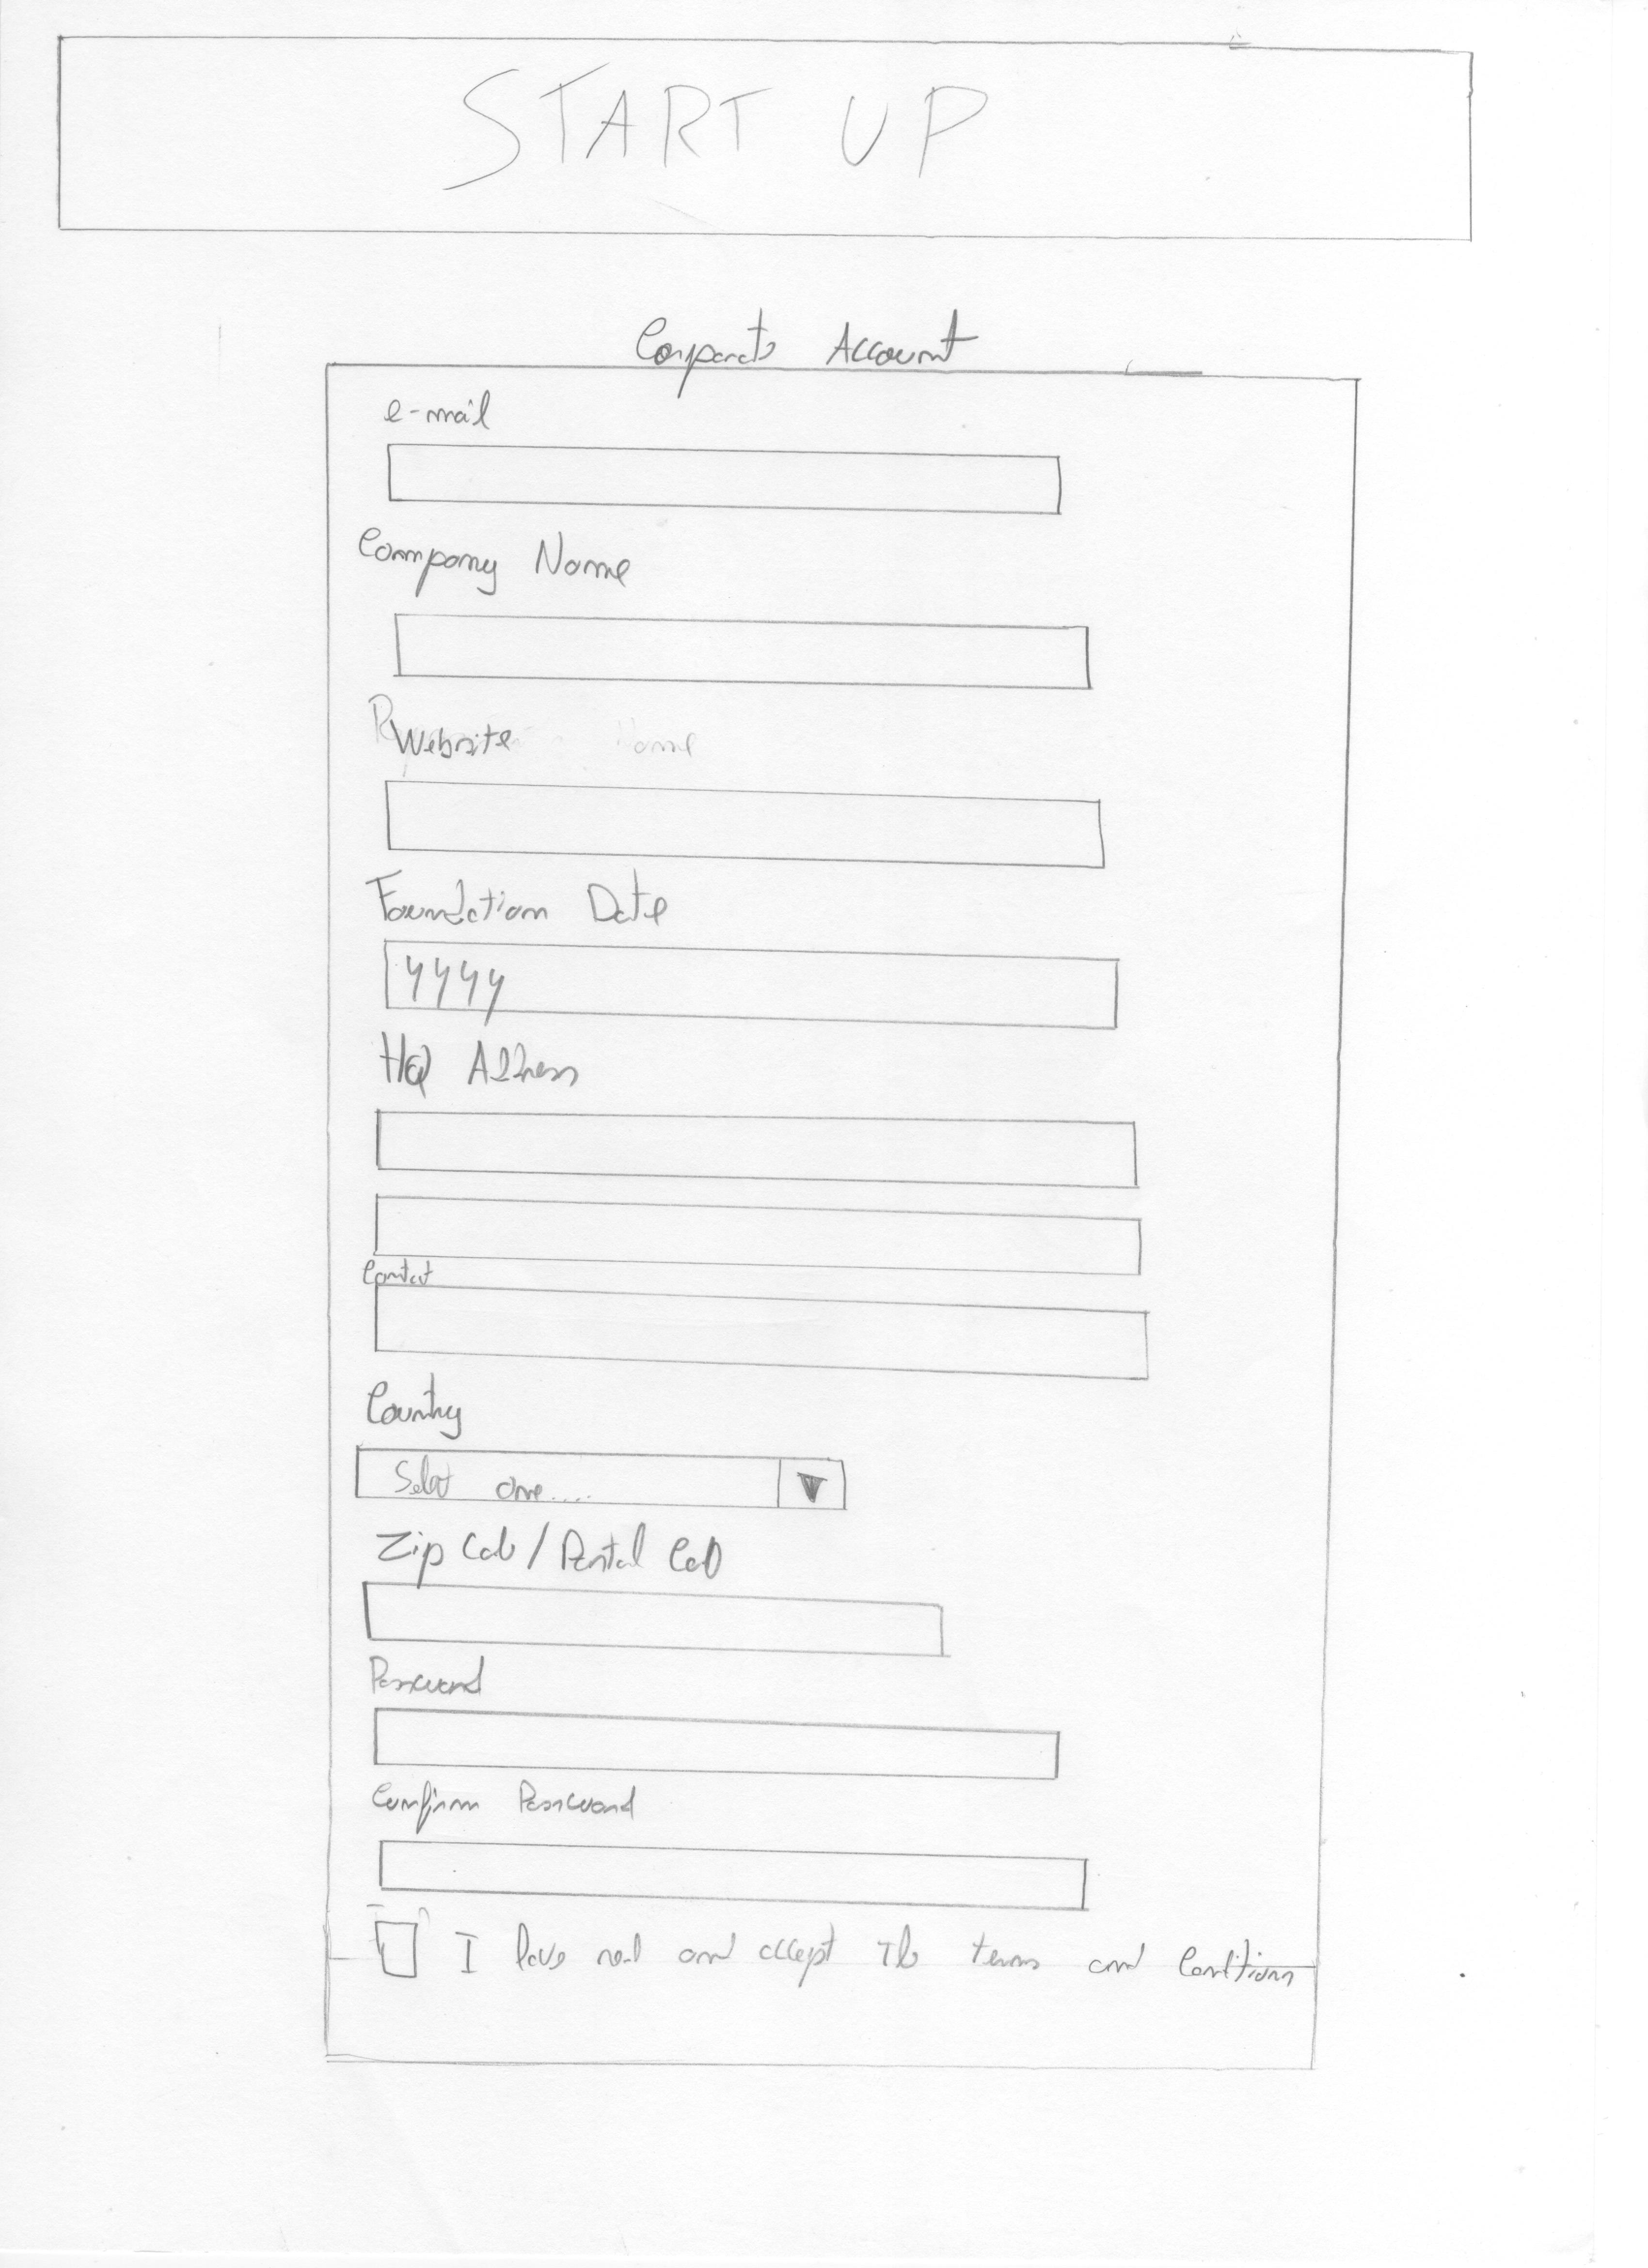 START UP
Corporate Account
e-mail
Company Name
Website
Name
Foundation Date
YYYY
HQ Address
Contact
Country
Select one....
Zip Code / Postal Code
Password
Confirm Password
I have read and accept the terms and Conditions